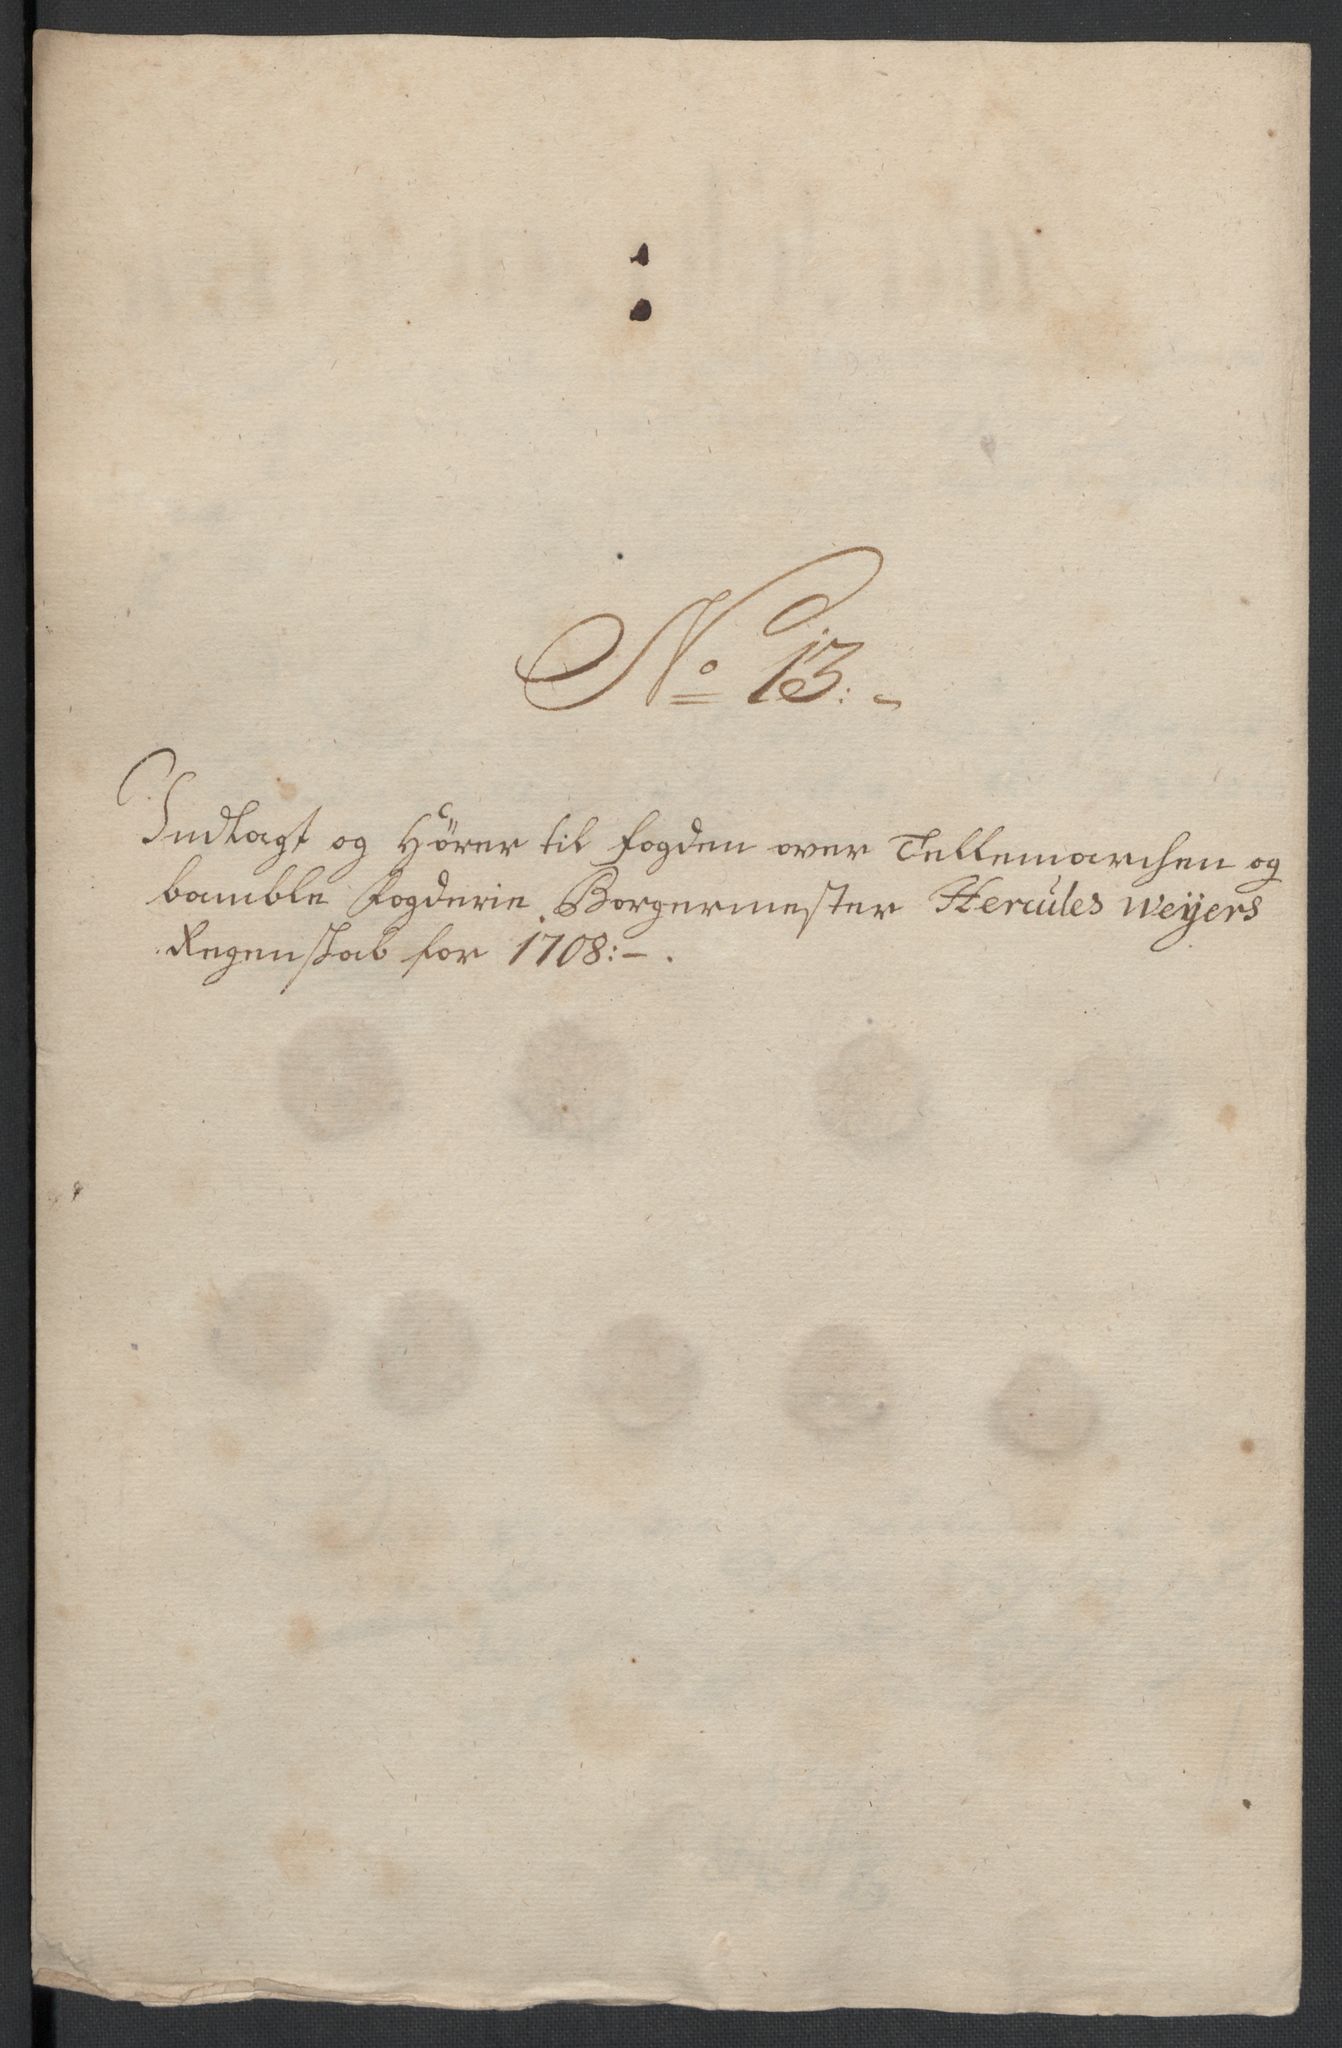 No 13:-
Indlagt og Hörer til fogden over Tellemarchen og
bamble Fogderie, Borgermester Hercules Weyers
Regenskab for 1708:-.